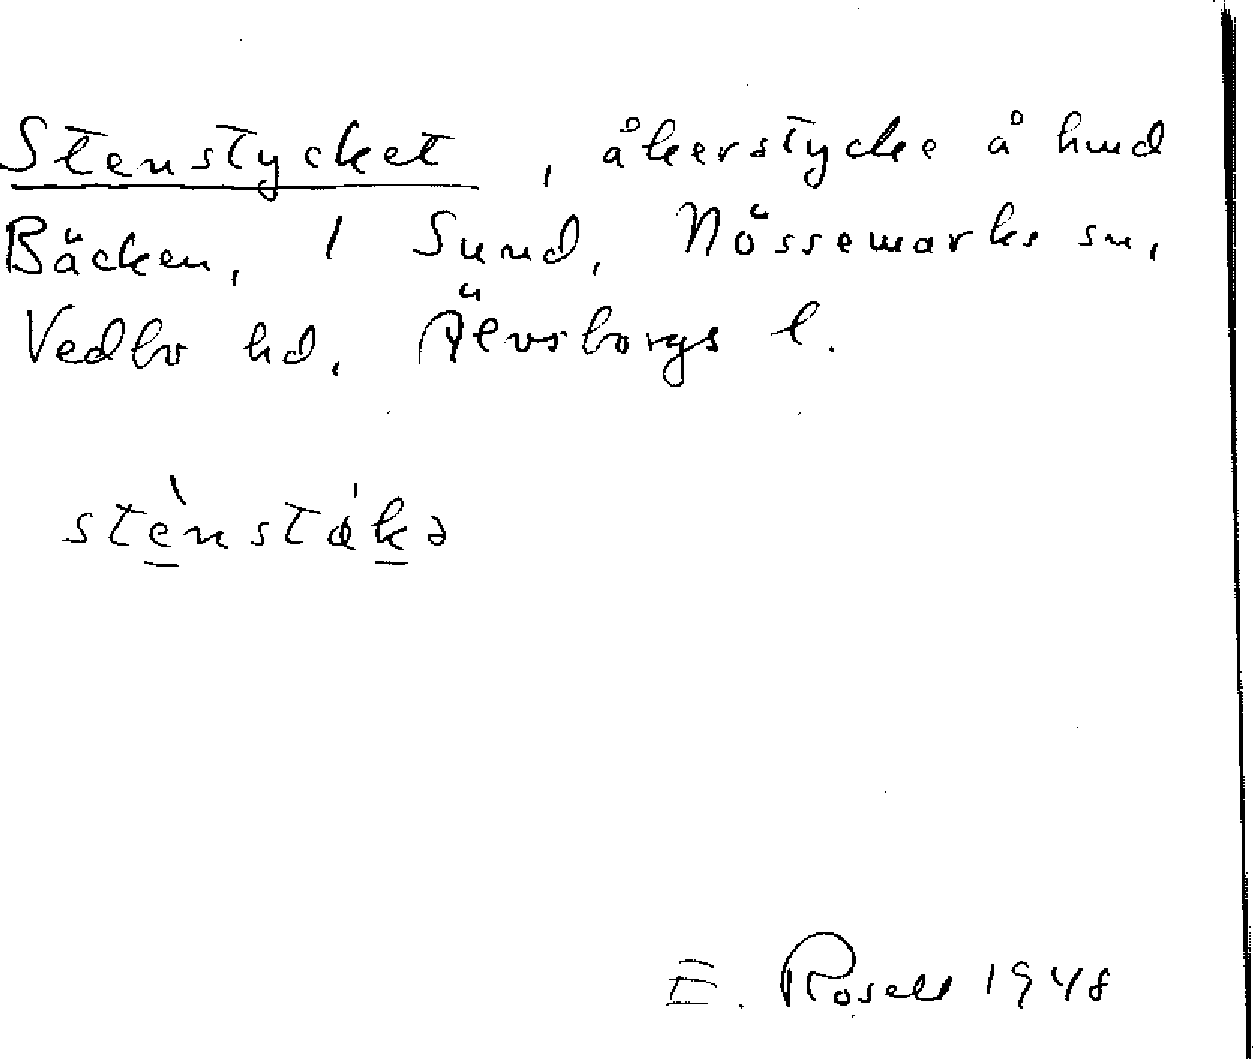 Stenstycket, åkerstycke å hmd
Bäcken, 1 Sund, Nössemarks sn,
Vedbo hd, Älvsborgs l.
E. Rosell 1948